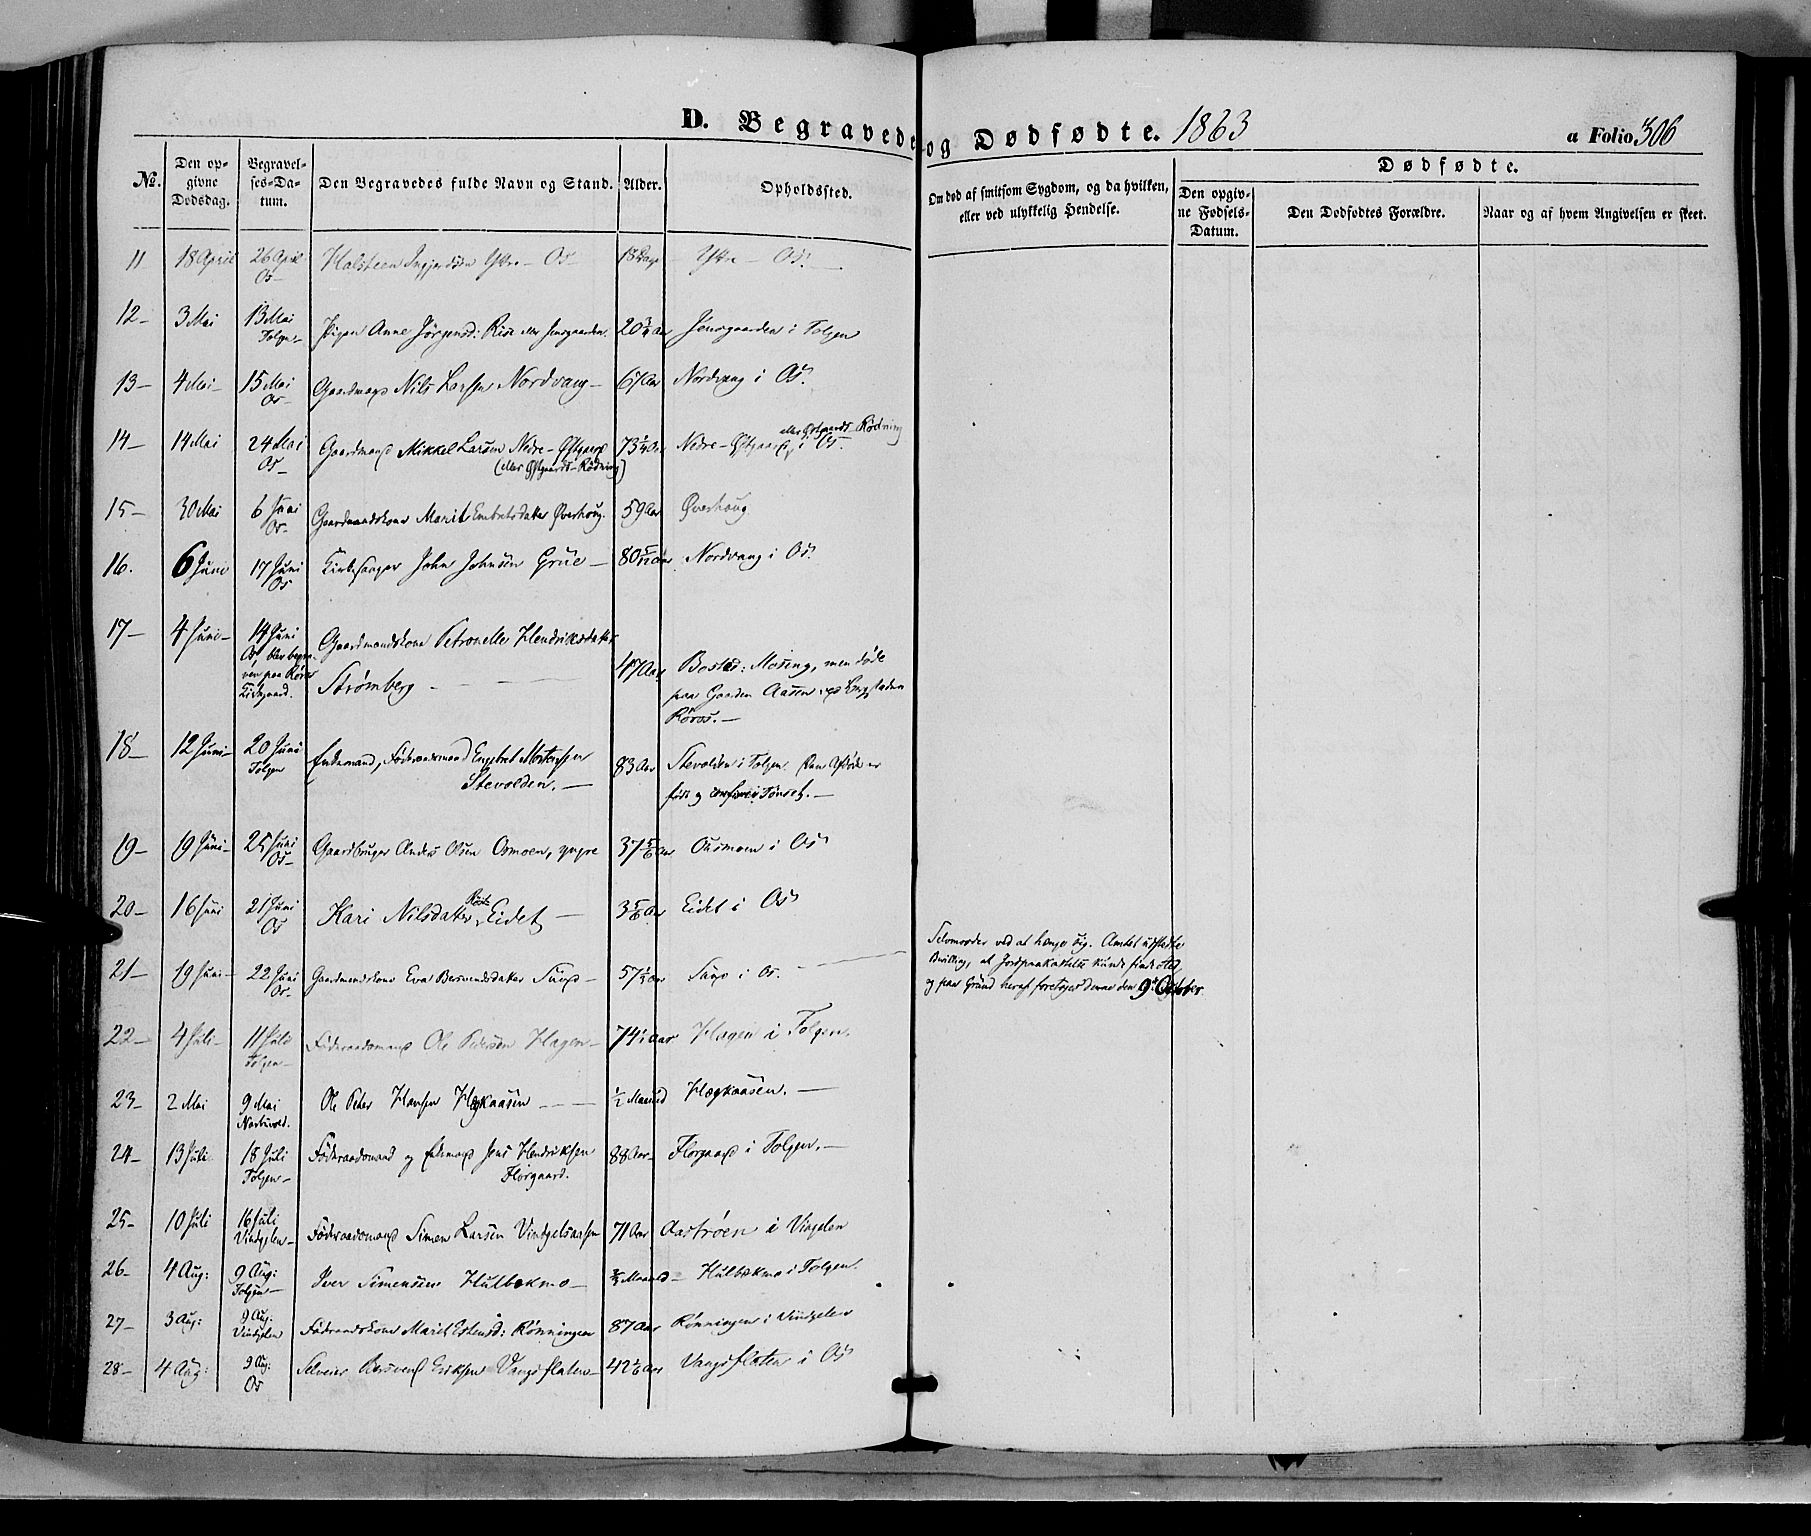 D. Begravede og Dødfødte. 1863
a Folio 306
No.
Den opgivne Dødsdag.
Begravelses-Datum.
Den Begravedes fulde Navn og Stand.
Alder.
Opholdssted.
Om død af smitsom Sygdom, og da hvilken, eller ved ulykkelig Hendelse.
Dødfødte.
Den opgivne Fødsels-Datum.
Den Dødfødtes Forældre.
Naar og af hvem Angivelsen er skeet.
11 18 April 26 April Os Halsteen Ingjerdsøn Ytre-Os 18 Dage Ytre-Os.
12 3 Mai 13 Mai Tolgen Pigen Anne Jörgensd: Rise eller Jensgaarden 20 3/4 Aar Jensgaarden i Tolgen
13 4 Mai 15 Mai Os Gaardmand Nils Larsen Nordvang 67 Aar Nordvang i Os.
14 14 Mai 24 Mai Os Gaardmand Mikkel Larsen Nedre-Østgaard (eller Østgaards-Rødning) 73 1/4 Aar Nedre-Østgaard eller Østgaards-Rødning i Os.
15 30 Mai 6 Juni Os Gaardmandskone Marit Embretsdatter Øverhoug 59 Aar Øverhoug
16. 6 Juni 17 Juni Os Kirkesanger John Johnsen Grüe 80 5/12 Aar Nordvang i Os.
17 4 Juni 14 Juni Os, blev begraven paa Røros Kirkegaard. Gaardmandskone Petronelle Hendriksdatter Strømberg 47 Aar Bosted: Mosing, men døde paa Gaarden Aasen ved Bergstaden Röros.
18 12 Juni 20 Juni Tolgen Enkemand, Föderaadsmand Engebret Mortensen Stevolden. 83 Aar Stevolden i Tolgen. Den Afdöde er född og conf. i Tønset.
19 19 Juni 25 Juni Os Gaardbruger Anders Olsen Osmoen, yngre 37 5/6 Aar Ousmoen i Os
20 16 Juni 21 Juni Os Kari Nilsdatter Røste Eidet 3 5/6 Aar Eidet i Os
21 19 Juni 22 Juni Os Gaardmandskone Eva Bersvendsdatter Sund 57 1/4 Aar Sund i Os. Selvmorder ved at hænge sig. Amtet udstedte Bevilling, at Jordpaakastelse kunde finde sted og paa Grund heraf foretoges denne den 9de October
22 4 Juli 11 Juli Tolgen Föderaadsmand Ole Pedersen Hagen 74 1/2 Aar Hagen i Tolgen.
23 2 Mai 9 Mai Narbuvold. Ole Peter Hansen Hægkaasen 1/2 Maaned Hægkaasen.
24 13 Juli 18 Juli Tolgen Föderaadsmand og Enkemand Jens Hendriksen Florgaard. 88 Aar Florgaard i Tolgen.
25 10 Juli 16 Juli Vindgelen Föderaadsmand Simen Larsen Vindgelsaasen 71 Aar Aaströen i Vingelen
26 4 Aug: 9 Aug: Tolgen Iver Simensen Hulbækmo 3/4 Maaned Hulbækmo i Tolgen.
27 3 Aug: 9 Aug: Vindgelen Föderaadskone Marit Estensd: Rønningen 87 Aar Rønningen i Vindgelen
28 4 Aug: 9 Aug: Os Selveier Bersvend Eriksen Vangsfloten 42 1/6 Aar Vangsfloten i Os